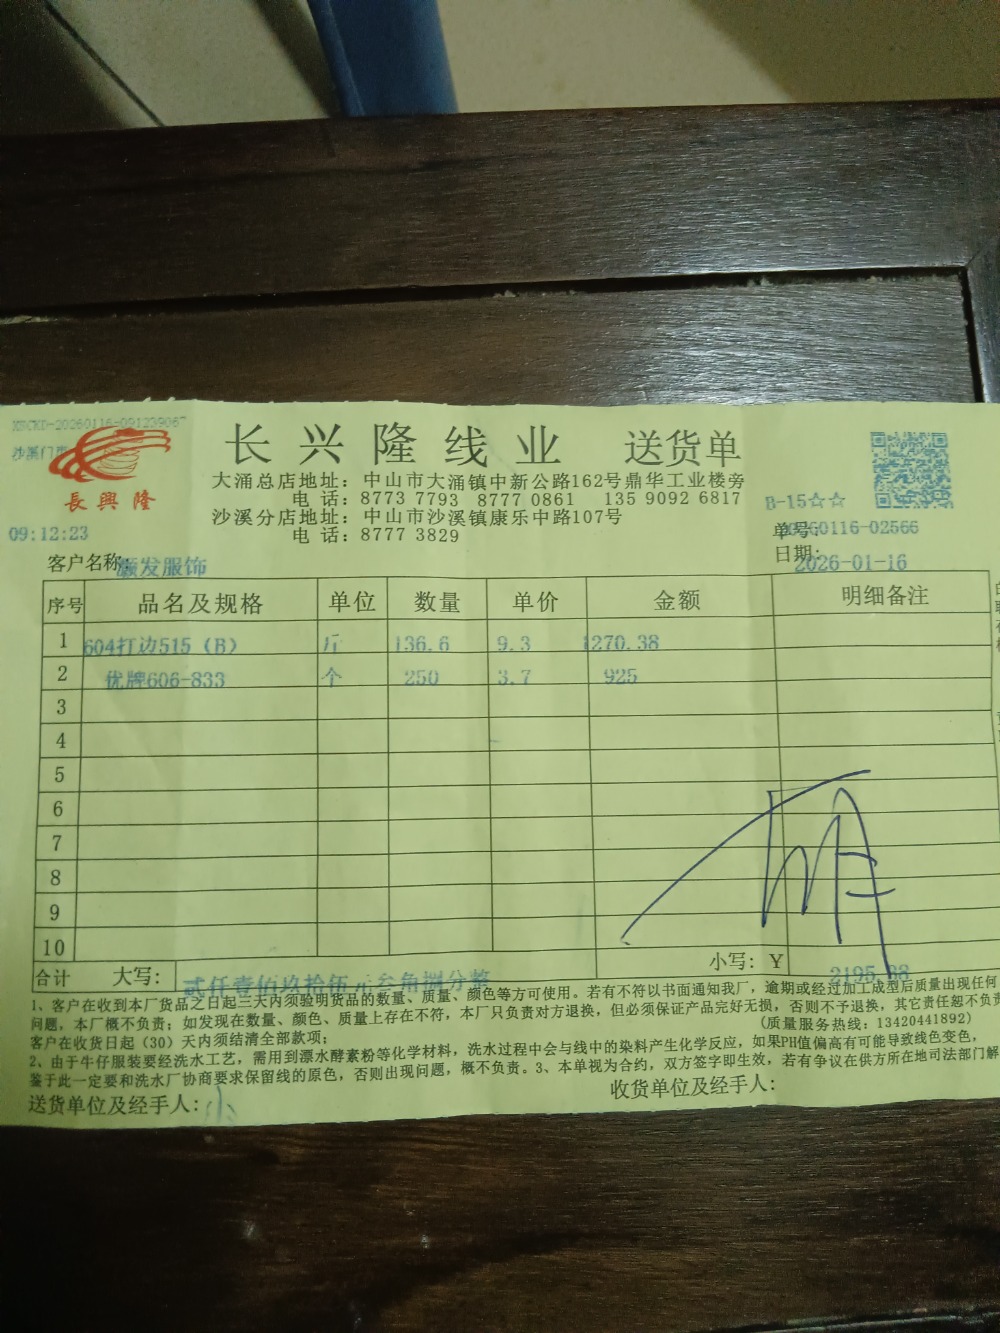 XSCKD-20260116-091239067
沙溪门市
長興隆
长兴隆线业 送货单
大涌总店地址：中山市大涌镇中新公路162号鼎华工业楼旁
电 话：8773 7793 8777 0861 135 9092 6817
沙溪分店地址：中山市沙溪镇康乐中路107号
电 话：8777 3829
B-15☆☆
09:12:23
单号：20260116-02566
日期：2026-01-16
客户名称：灏发服饰
序号 品名及规格 单位 数量 单价 金额 明细备注
1 604打边515（B） 斤 136.6 9.3 1270.38
2 优牌606-833 个 250 3.7 925
3
4
5
6
7
8
9
10
合计 大写：贰仟壹佰玖拾伍元叁角捌分整 小写：￥ 2195.38
1、客户在收到本厂货品之日起三天内须验明货品的数量、质量、颜色等方可使用。若有不符以书面通知我厂，逾期或经过加工成型后质量出现任何
问题，本厂概不负责；如发现在数量、颜色、质量上存在不符，本厂只负责对方退换，但必须保证产品完好无损，否则不予退换，其它责任恕不负责
客户在收货日起（30）天内须结清全部款项； (质量服务热线：13420441892)
2、由于牛仔服装要经洗水工艺，需用到漂水酵素粉等化学材料，洗水过程中会与线中的染料产生化学反应，如果PH值偏高有可能导致线色变色，
鉴于此一定要和洗水厂协商要求保留线的原色，否则出现问题，概不负责。3、本单视为合约，双方签字即生效，若有争议在供方所在地司法部门解
送货单位及经手人：小 收货单位及经手人：